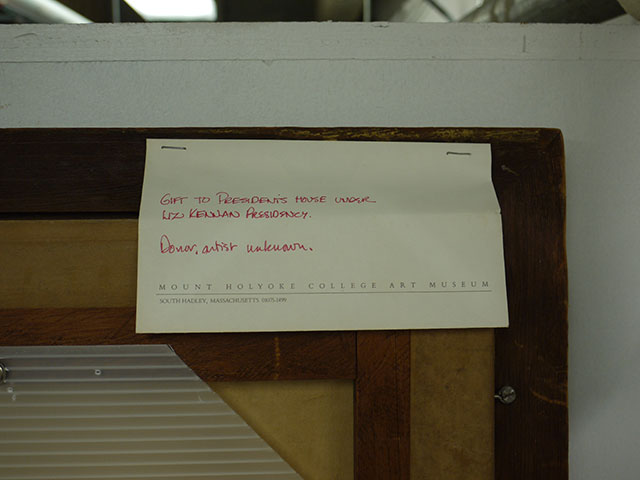 GIFT TO PRESIDENT'S HOUSE UNDER
LIZ KENNAN PRESIDENCY.
Donor, artist unknown.
MOUNT HOLYOKE COLLEGE ART MUSEUM
SOUTH HADLEY, MASSACHUSETTS 01075-1499